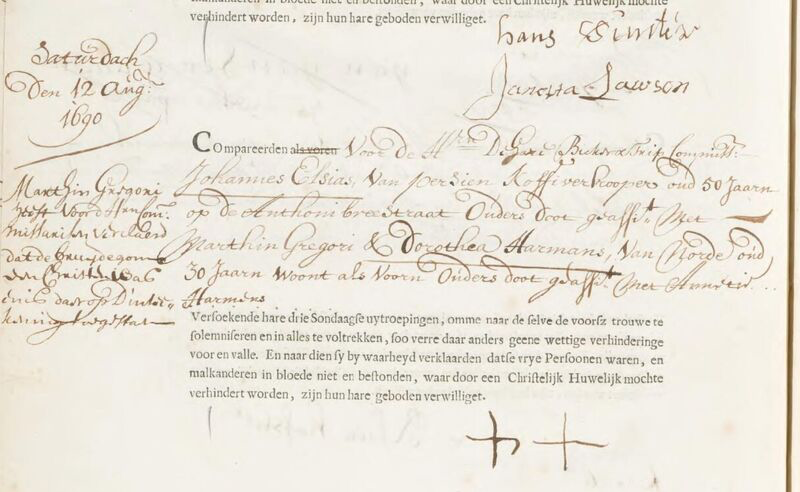 malkanderen in bloede niet en bestonden, waar door een Christelijk Huwelijk mochte
verhindert worden, zijn hun hare geboden verwilliget.
hans
Lawson
Saturdach
Den 12 Augt:
1690
COmpareerden als voren Voor de Hren DeGeer Committ:
Johannes Elsias, Van Persien Koffiverkooper oud 50 Jaarn
op de Anthonibreestraat Ouders doot geassist Met
Marthin Gregori & Dorothea Harmans, Van Norde oud
30 Jaarn Woont als Voorn Ouders doot geassist Met Annetie
Harmens
Marthin Gregori
heeft Voor d Heren Com:
missarien Verclaerd
dat de bruydegom
een Cristen was
en is daer op D'intec-
kening toegestaen
Versoekende hare drie Sondaagse uytroepingen, omme naar de selve de voorsz trouwe te
solemniseren en in alles te voltrekken, soo verre daar anders geene wettige verhinderinge
voor en valle. En naar dien sy by waarheyd verklaarden datse vrye Persoonen waren, en
malkanderen in bloede niet en bestonden, waar door een Christelijk Huwelijk mochte
verhindert worden, zijn hun hare geboden verwilliget.